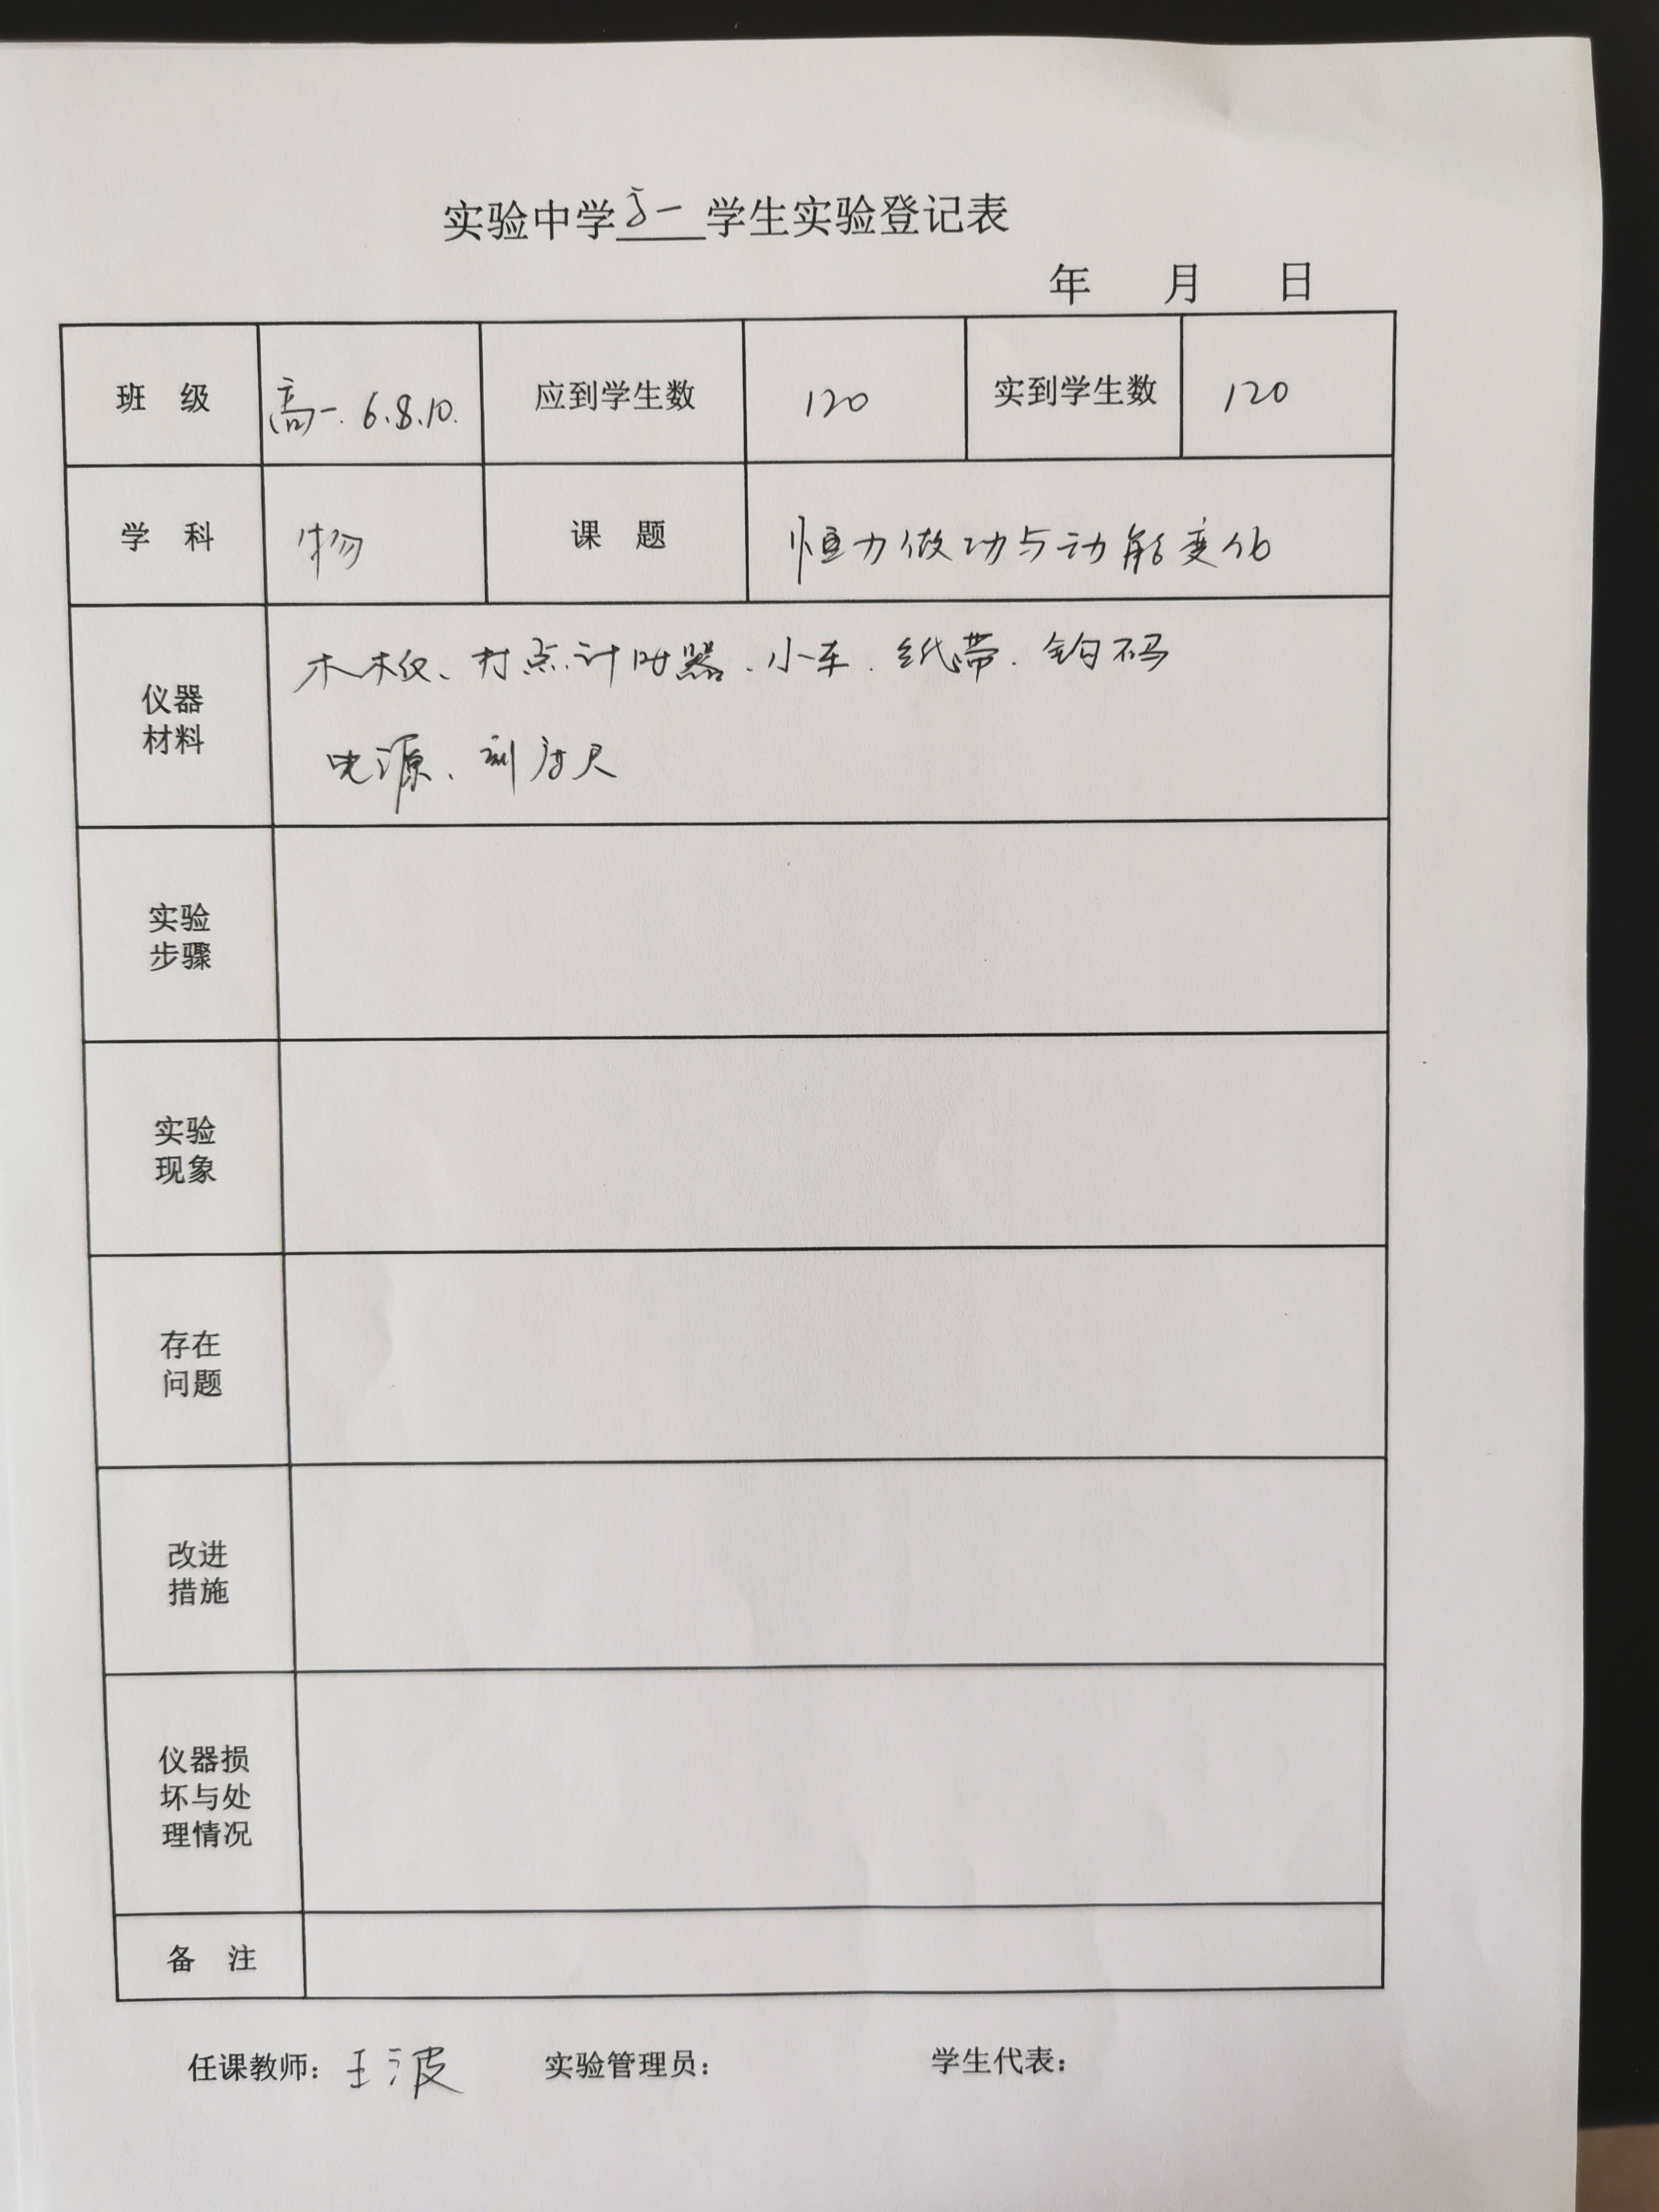 实验中学高一学生实验登记表
年 月 日
班 级 高一.6.8.10. 应到学生数 120 实到学生数 120
学 科 物 课 题 恒力做功与动能变化
仪器
材料
木板、打点计时器、小车、纸带、钩码
电源、刻度尺
实验
步骤
实验
现象
存在
问题
改进
措施
仪器损
坏与处
理情况
备 注
任课教师：王波 实验管理员： 学生代表：